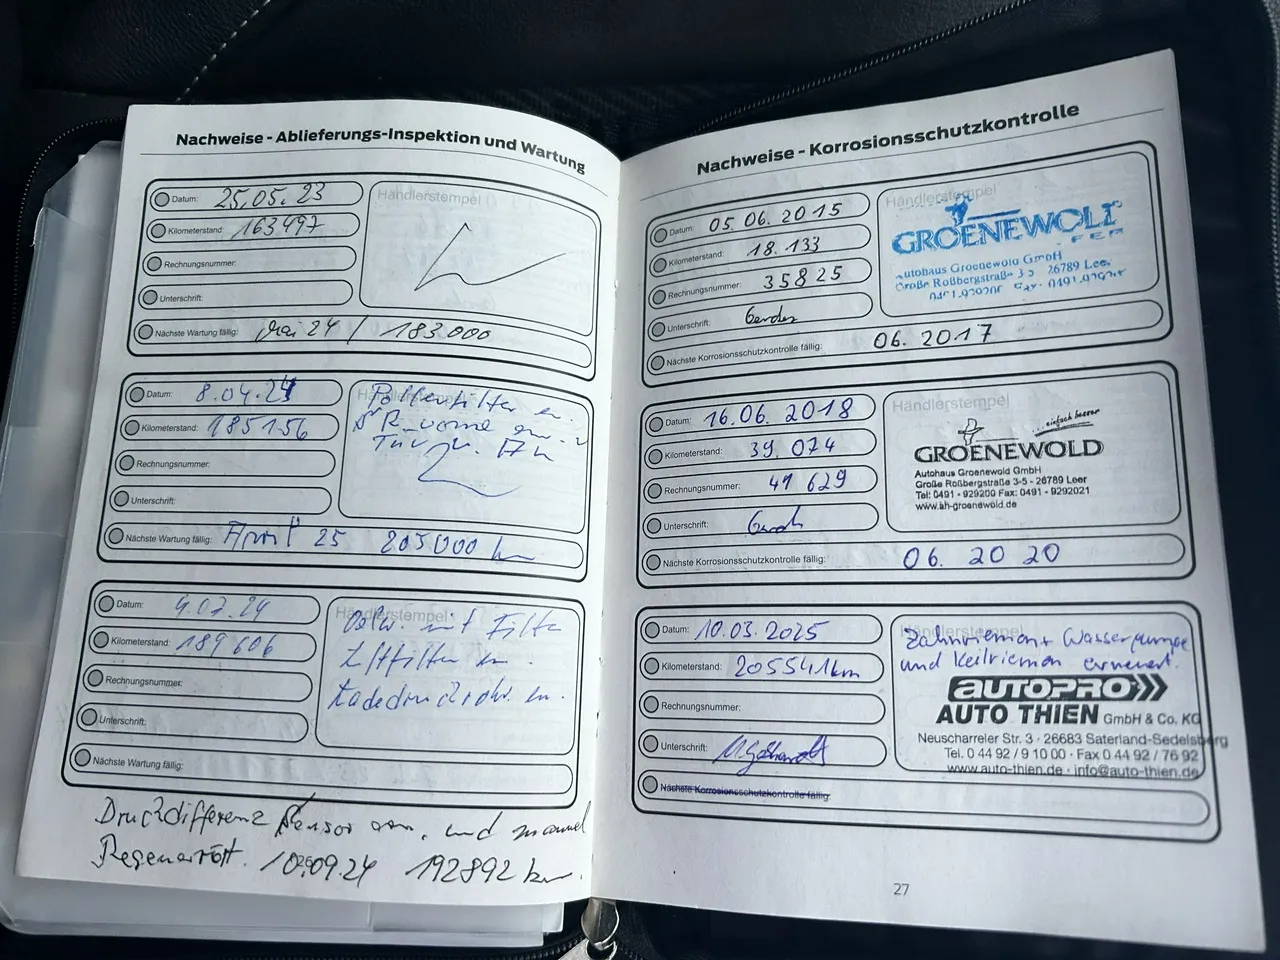 Nachweise - Ablieferungs-Inspektion und Wartung
Datum: 25.05.23
Händlerstempel
Kilometerstand: 163497
Rechnungsnummer:
Unterschrift:
Nächste Wartung fällig: Mai 24 / 183.000
Datum: 8.04.24
Händlerstempel
Pollenfilter en.
Kilometerstand: 185156
Rechnungsnummer:
Unterschrift:
Nächste Wartung fällig: April 25 205000 km
Datum: 4.07.24
Händlerstempel
Oelw. mit Filter
Kilometerstand: 189606
Luftfilter en.
Rechnungsnummer:
Ladedruckrohr en.
Unterschrift:
Nächste Wartung fällig:
Druckdifferenz Sensor ern. und manuel
Regeneriert. 10.09.24 192892 km.
Nachweise - Korrosionsschutzkontrolle
Datum: 05.06.2015
Händlerstempel
Kilometerstand: 18.133
GROENEWOLD
Rechnungsnummer: 35825
Autohaus Groenewold GmbH
Große Roßbergstraße 3-5 26789 Leer
Unterschrift:
Nächste Korrosionsschutzkontrolle fällig: 06.2017
Datum: 16.06.2018
Händlerstempel
...einfach besser
Kilometerstand: 39.074
GROENEWOLD
Autohaus Groenewold GmbH
Rechnungsnummer: 41629
Große Roßbergstraße 3-5 - 26789 Leer
Tel: 0491 - 929200 Fax: 0491 - 9292021
www.ah-groenewold.de
Unterschrift:
Nächste Korrosionsschutzkontrolle fällig: 06.2020
Datum: 10.03.2025
Händlerstempel
Zahnriemen + Wasserpumpe
und Keilriemen erneuert.
Kilometerstand: 205541km
AUTOPRO
Rechnungsnummer:
AUTO THIEN GmbH & Co. KG
Neuscharreler Str. 3 · 26683 Saterland-Sedelsberg
Unterschrift:
Tel. 0 44 92 / 9 10 00 · Fax 0 44 92 / 76 92
www.auto-thien.de · info@auto-thien.de
Nächste Korrosionsschutzkontrolle fällig:
27